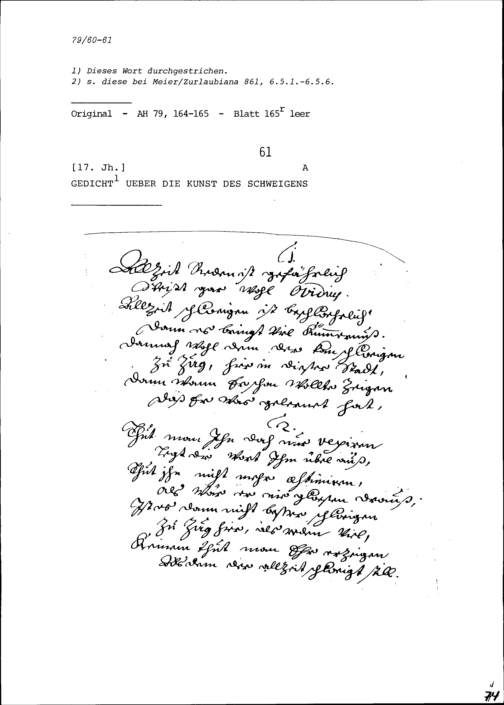 79/60-61
1) Dieses Wort durchgestrichen.
2) s. diese bei Meier/Zurlaubiana 861, 6.5.1.-6.5.6.
Original - AH 79, 164-165 - Blatt 165r leer
61
[17. Jh.] A
GEDICHT1 UEBER DIE KUNST DES SCHWEIGENS
1.
Allzeit Reden ist gefährlich
Schreibt gar wohl Ovidius.
Allzeit schweigen ist beschwehrlich
Dann es bringt Viel Kümmernuß.
Dannoch wohl dem der kan schweigen
Zu Zug, hier in dieser Statt,
Dann wann Er schon wollte Zeigen
Daß Er was gelernet hat,
2.
Thut man Ihn doch nur vexiren
Legt die wort Ihm übel auß,
Thut ihn nicht mehr æstimiren,
Als wär er nie gewesen drauß;
Ist es dann nicht besser schweigen
Zu Zug hier, als reden Viel,
Keinem thut man Ehr erzeigen
Als dem der allzeit schweigt still.
74